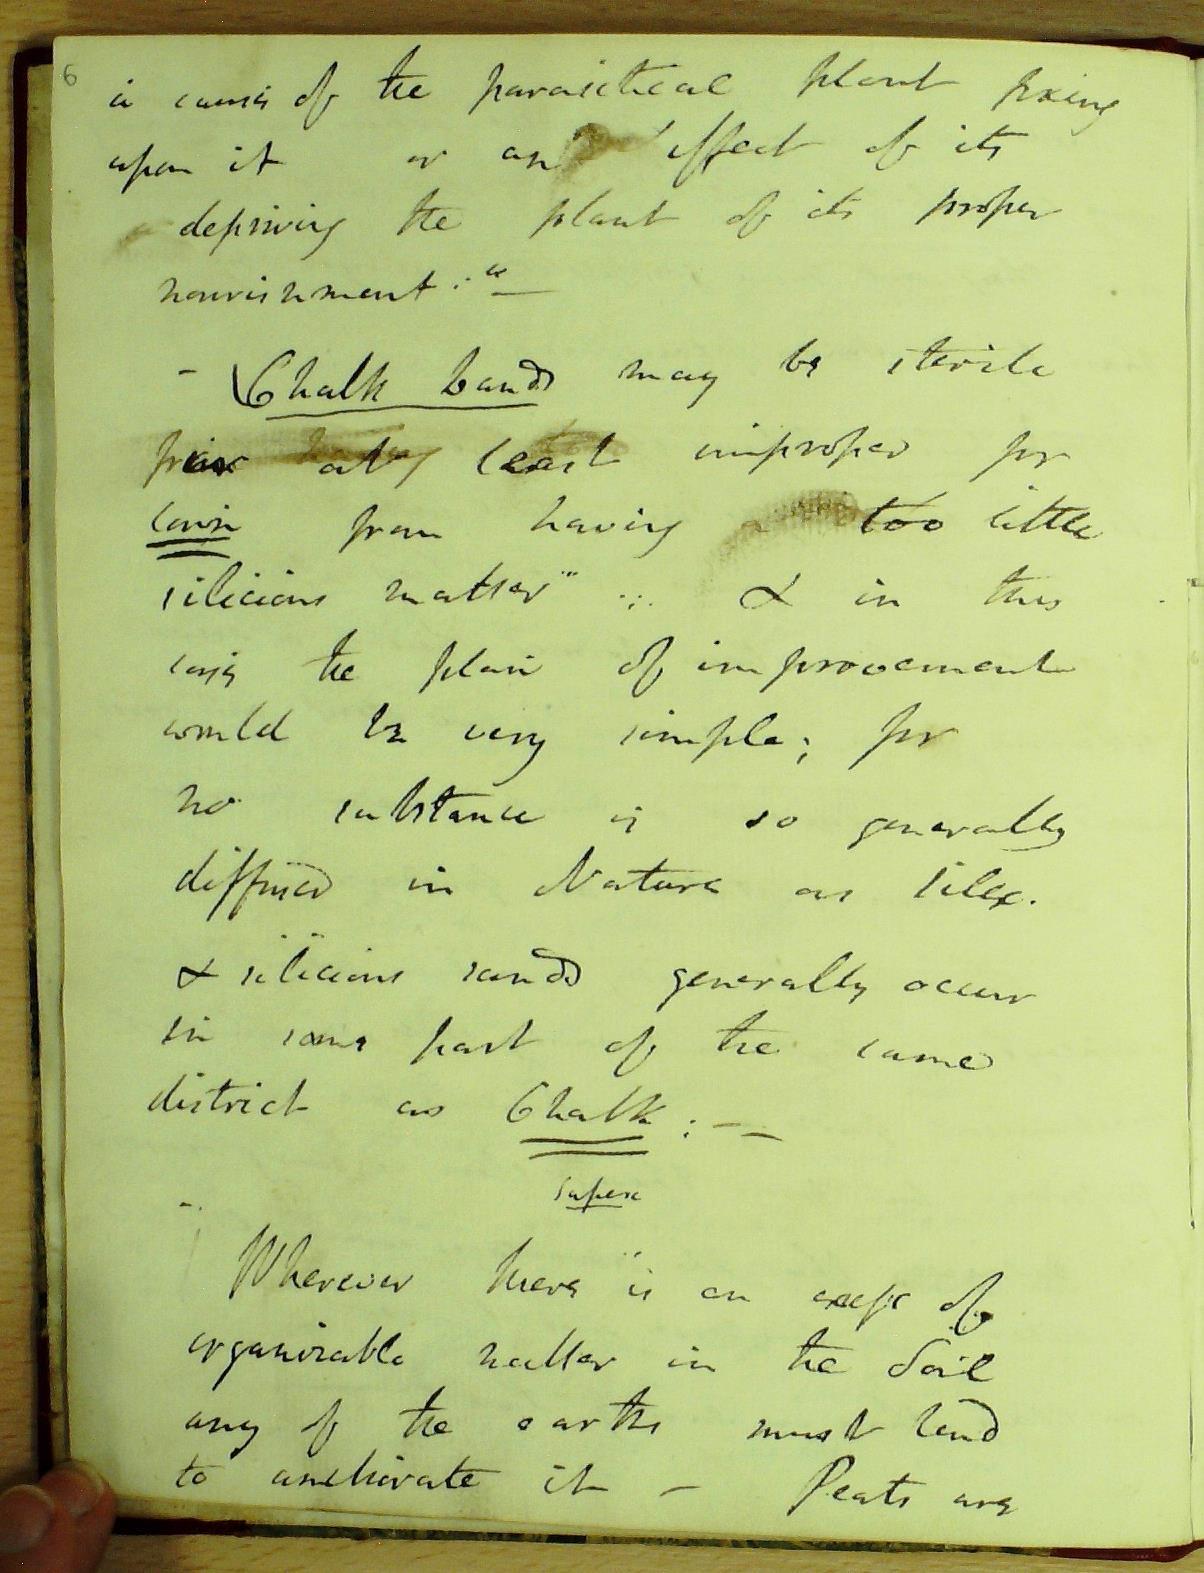 6
is cause of the parasitical plant fixing
upon it or an effect of its
depriving the plant of its proper
nourishment:"—
- Chalk lands may be sterile
or at least improper for
corn from having too little
silicious matter" & in this
case the plan of improvement
would be very simple; for
no substance is so generally
diffused in Nature as silex.
& silicious sands generally occur
in some part of the same
district as Chalk: — —
Wherever there is an excess of
organizable matter in the Soil
any of the earths must tend
to ameliorate it — Peats are